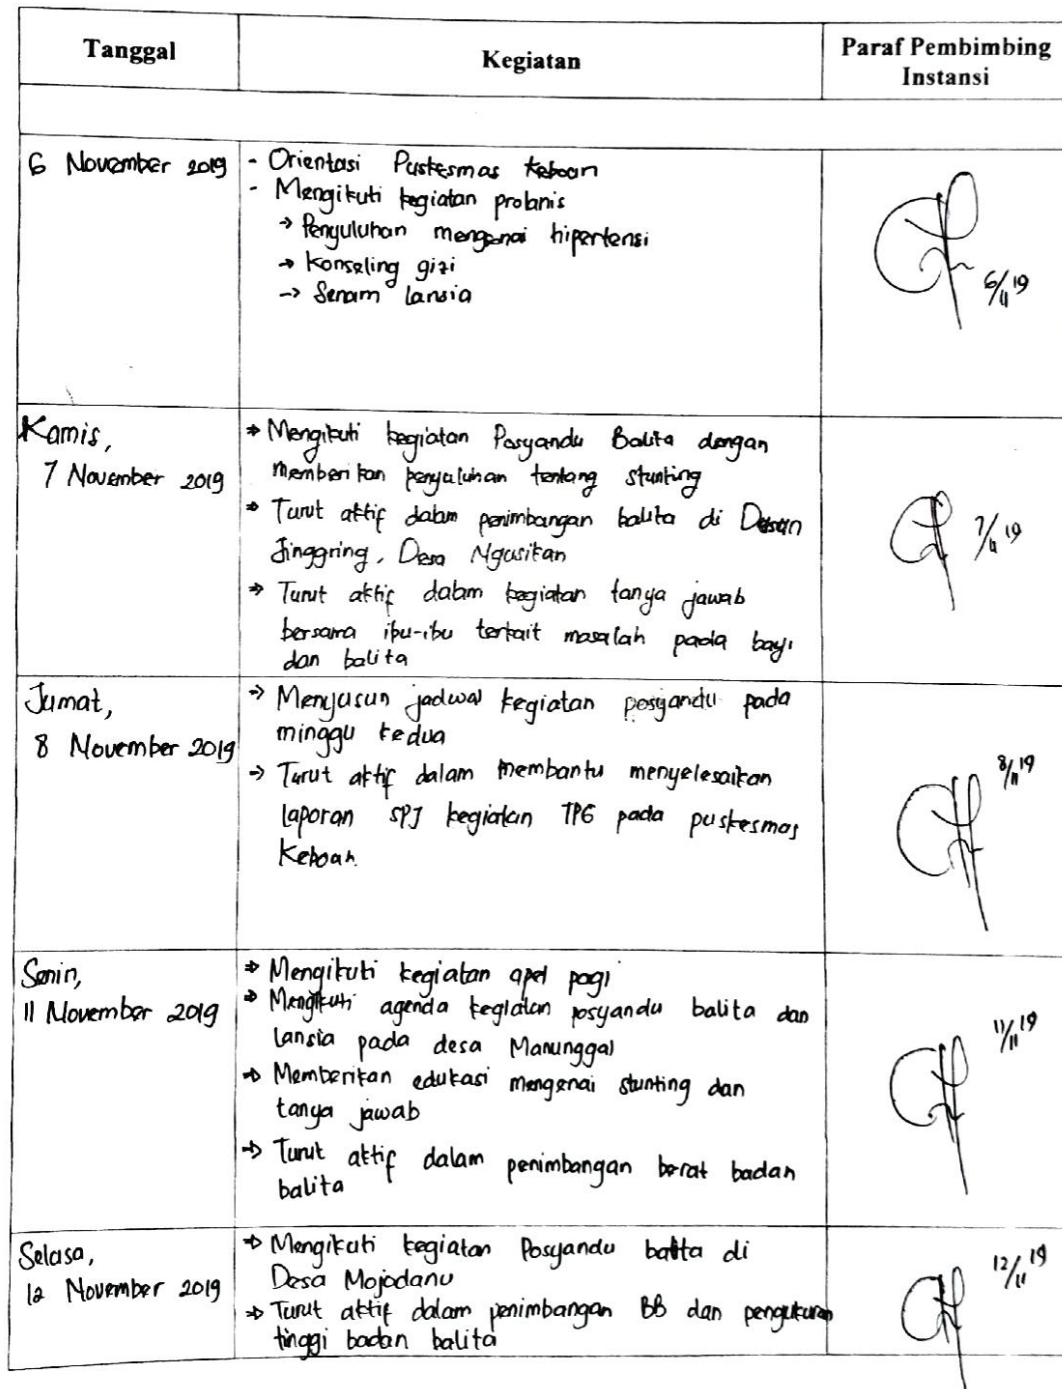 Tanggal
Kegiatan
Paraf Pembimbing
Instansi
6 November 2019
- Orientasi Puskesmas Keboan
- Mengikuti kegiatan prolanis
→ Penyuluhan mengenai hipertensi
→ Konseling gizi
→ Senam lansia
6/11 19
Kamis,
7 November 2019
→ Mengikuti kegiatan Posyandu Balita dengan
memberikan penyuluhan tentang stunting
→ Turut aktif dalam penimbangan balita di Dusun
Jinggring, Desa Ngusikan
→ Turut aktif dalam kegiatan tanya jawab
bersama ibu-ibu terkait masalah pada bayi
dan balita
7/11 19
Jumat,
8 November 2019
→ Menyusun jadwal kegiatan posyandu pada
minggu kedua
→ Turut aktif dalam membantu menyelesaikan
laporan SPJ kegiatan TPG pada puskesmas
Keboan.
8/11 19
Senin,
11 November 2019
→ Mengikuti kegiatan apel pagi
→ Mengikuti agenda kegiatan posyandu balita dan
lansia pada desa Manunggal
→ Memberikan edukasi mengenai stunting dan
tanya jawab
→ Turut aktif dalam penimbangan berat badan
balita
11/11 19
Selasa,
12 November 2019
→ Mengikuti kegiatan Posyandu balita di
Desa Mojodanu
→ Turut aktif dalam penimbangan BB dan pengukuran
tinggi badan balita
12/11 19